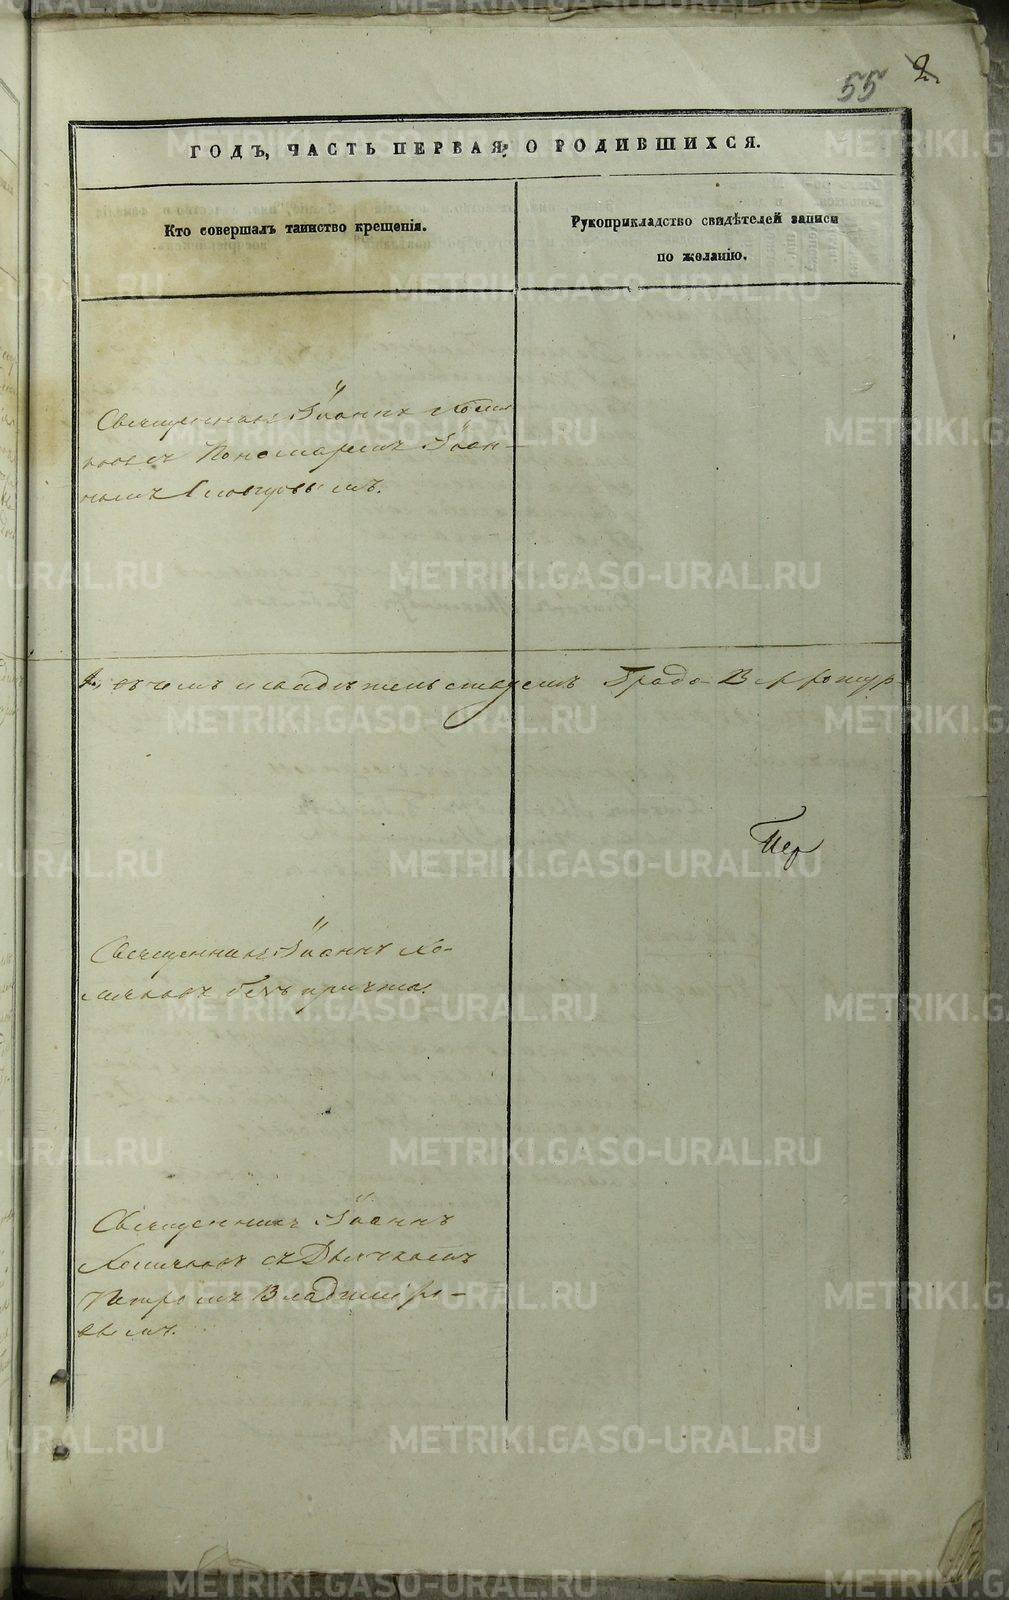 55 2.
ГОДЪ, ЧАСТЬ ПЕРВАЯ, О РОДИВШИХСЯ.
Кто совершалъ таинство крещенія.
Рукоприкладство свидѣтелей записи
по желанію.
Священникъ Іоаннъ
съ Пономаремъ Іоан-
номъ
въ чемъ и свидѣтельствуемъ Градо-Верхотур-
Священникъ Іоаннъ Хо-
безъ причта.
Священникъ Іоаннъ
съ Дьячкомъ
Петромъ Владиміро-
вымъ.
METRIKI.GASO-URAL.RU